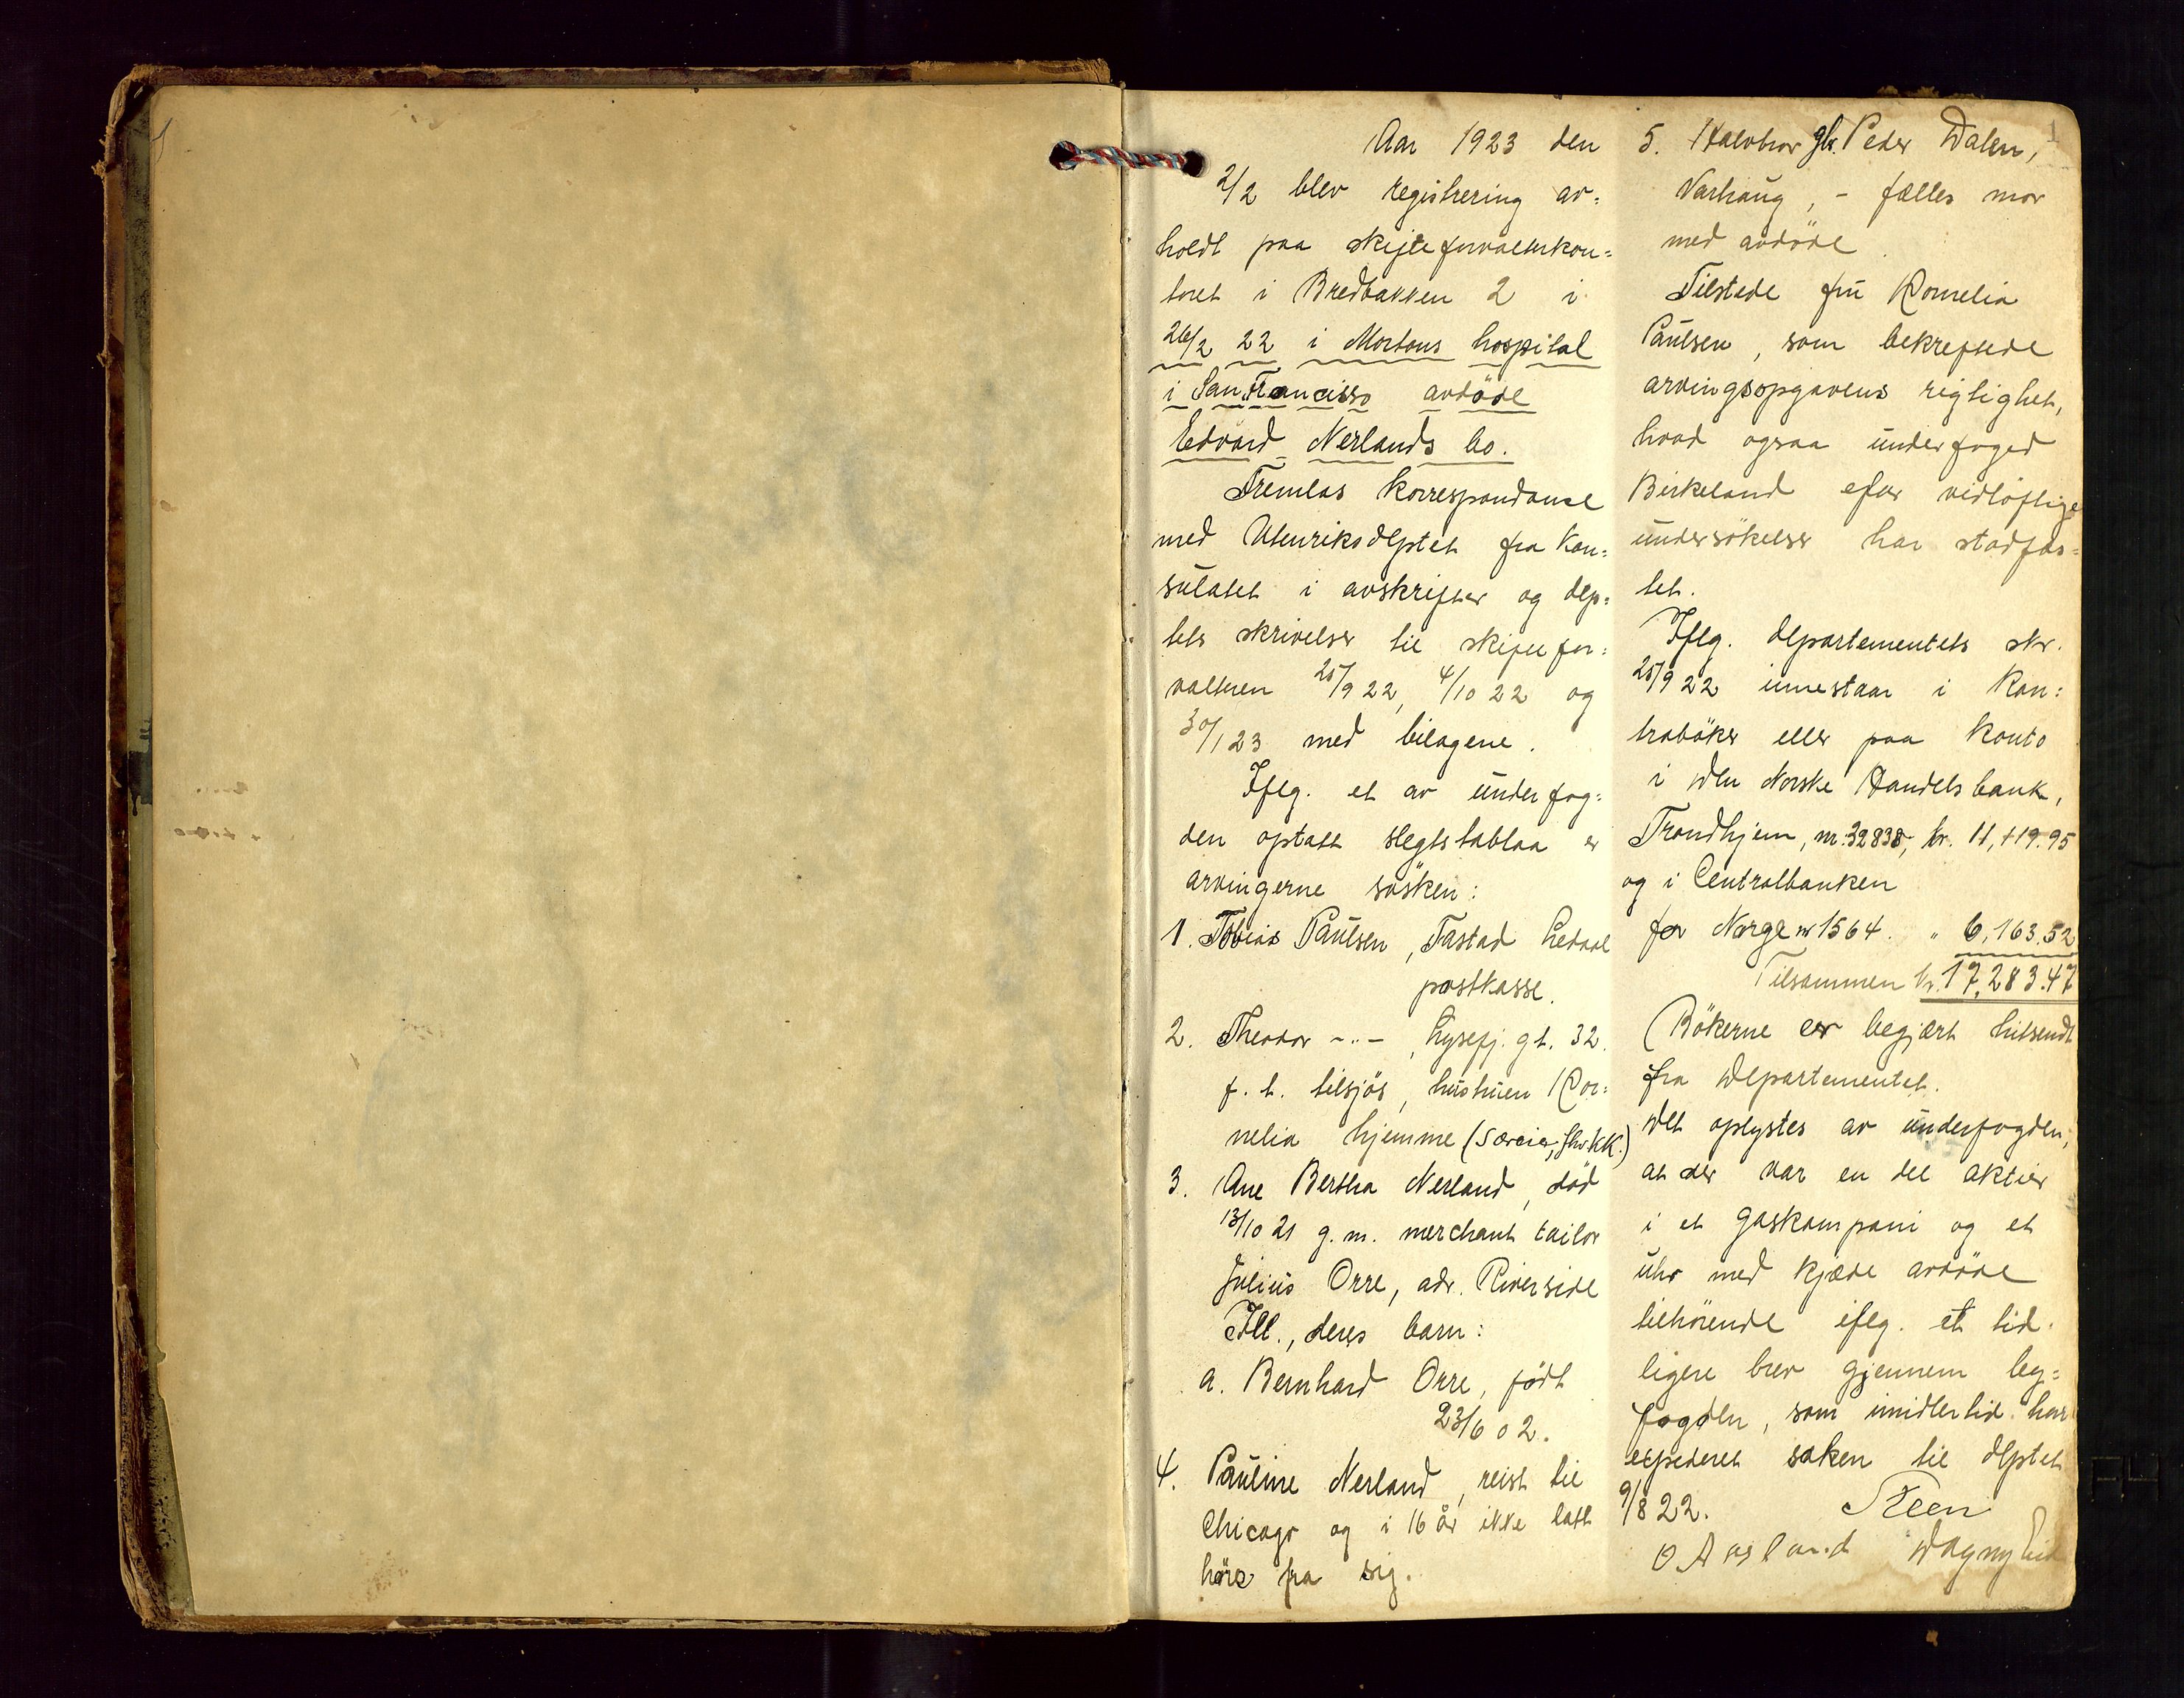 Aar 1923 den
2/2 blev registrering av=
holdt paa skifteforvalterkon=
toret i Bredbakken 2 i
26/2 22 i Mortons hospital
i San Francisko avdöde
Edvard Nerlands bo.
Fremlas korrespondanse
med Utenriksdeptet fra kon=
sulatet i avskrifter og dep=
tets skrivelser til skiftefor=
valteren 25/9 22, 4/10 22 og
30/1 23 med bilagene.
Iflg. et av underfog=
den optatt slegtstablaa er
arvingerne søsken:
1. Tobias Paulsen, Tastad Ledaal
postkasse.
2. Theodor -"- , Lysefj. gt. 32.
f. t. tilsjös, hustruen Kor=
nelia hjemme (særeie, KK.)
3. Ane Bertha Nerland, död
13/10 21 g. m. merchant tailor
Julius Orre, adr. Riverside
Ill., deres barn:
a. Bernhard Orre, født
23/6 02.
4. Pauline Nerland, reist til
Chicago og i 16 år ikke latt
høre fra sig.
1
5. Halvbror Peder Dalen,
Varhaug, - fælles mor
med avdöde.
Tilstede fru Kornelia
Paulsen, som bekreftede
arvingsopgavens rigtighet,
hvad ogsaa underfoged
Birkeland efter vidløftige
undersökelser har stadfæs=
tet.
Iflg. departementets skr.
25/9 22 innestaar i kon=
trabøker eller paa konto
i Den Norske Handelsbank,
Trondhjem, nr. 32838, kr. 11,119.95
og i Centralbanken
for Norge nr 1564. " 6,163.52
Tilsammen kr. 17,283.47
(Bøkerne er begjært hitsendt
fra Departementet.
Det oplystes av underfogden,
at der var en del aktier
i et gaskompani og et
uhr med kjæde avdöde
tilhörende iflg. et tid.
ligere brev gjennem by=
fogden, som imidlertid har
expederet saken til deptet
9/8 22. Steen
O Aasland Dagny